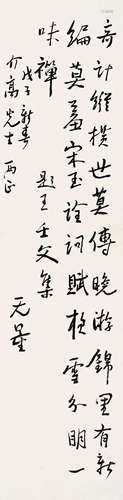 奇计纵横世莫传晚游锦里有新
编莫羞宋玉诠词赋枚云分明一
味禅 题王壬父集
戊子新春
介高先生两正
无量